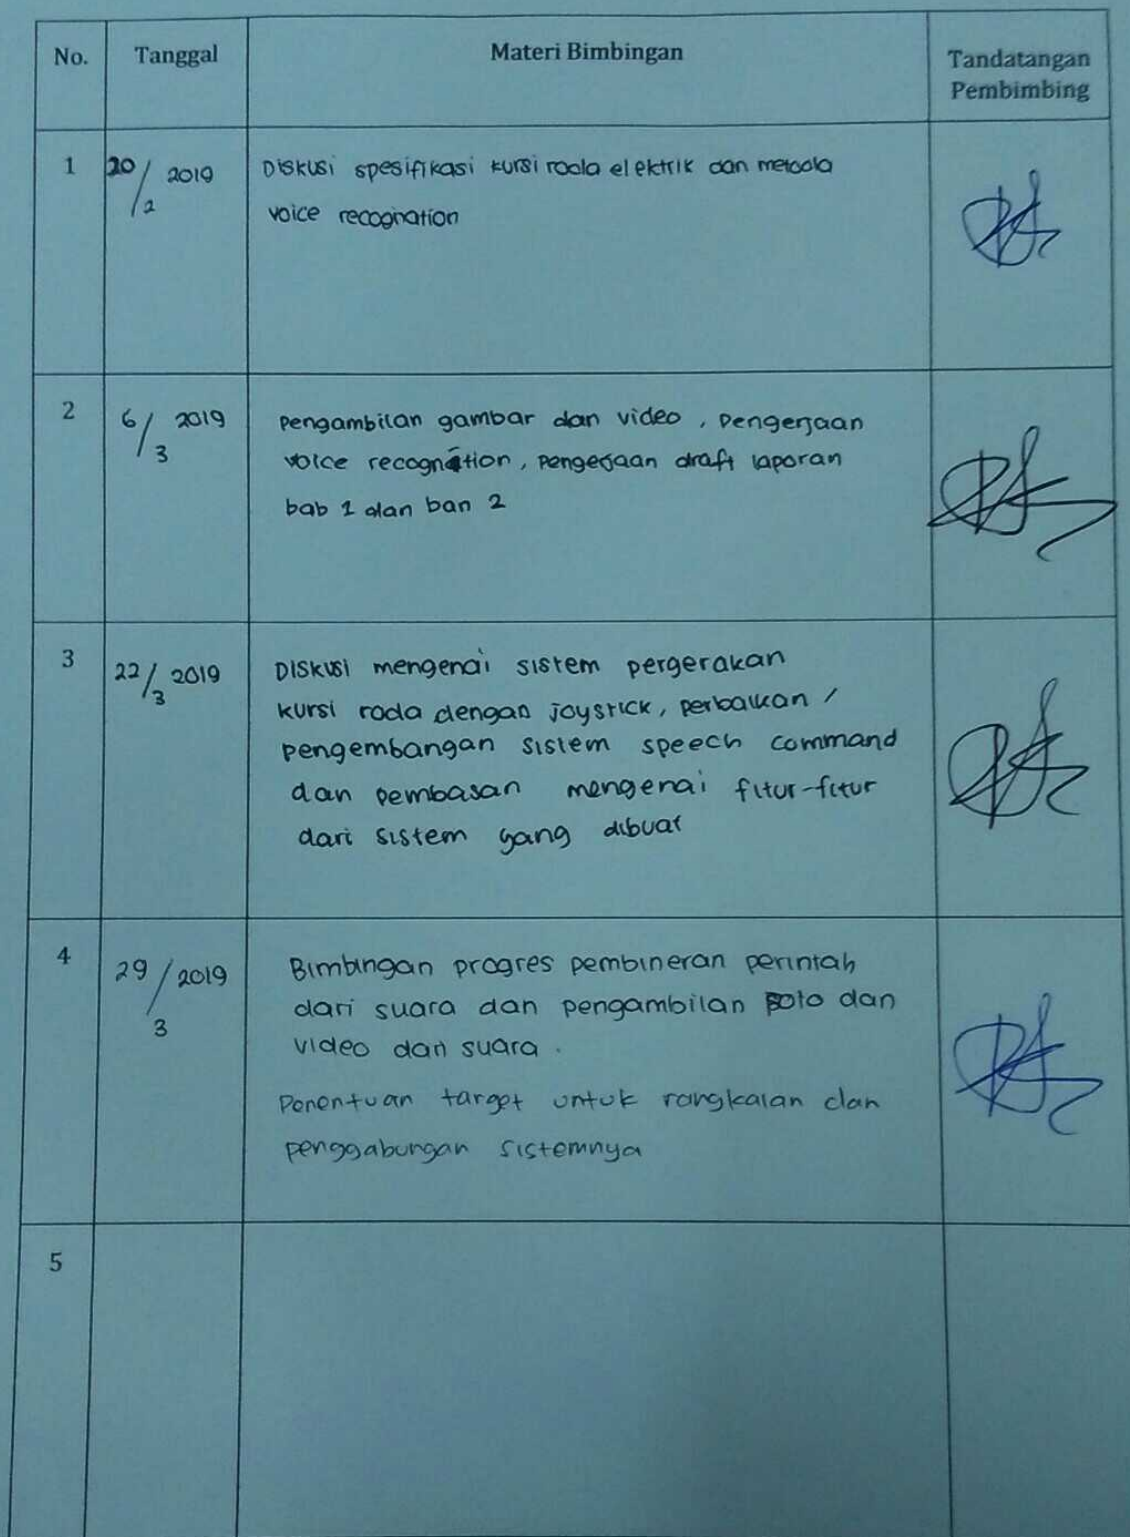 No. Tanggal Materi Bimbingan Tandatangan
Pembimbing
1 20/2 2019 Diskusi spesifikasi kursi roda elektrik dan metoda
voice recognation
2 6/3 2019 Pengambilan gambar dan video, pengerjaan
voice recognation, pengerjaan draft laporan
bab 1 dan ban 2
3 22/3 2019 Diskusi mengenai sistem pergerakan
kursi roda dengan joystick, perbaikan /
pengembangan sistem speech command
dan pembasan mengenai fitur-fitur
dari sistem yang dibuat
4 29/3 2019 Bimbingan progres pembineran perintah
dari suara dan pengambilan foto dan
video dari suara.
Penentuan target untuk rangkaian dan
penggabungan sistemnya
5